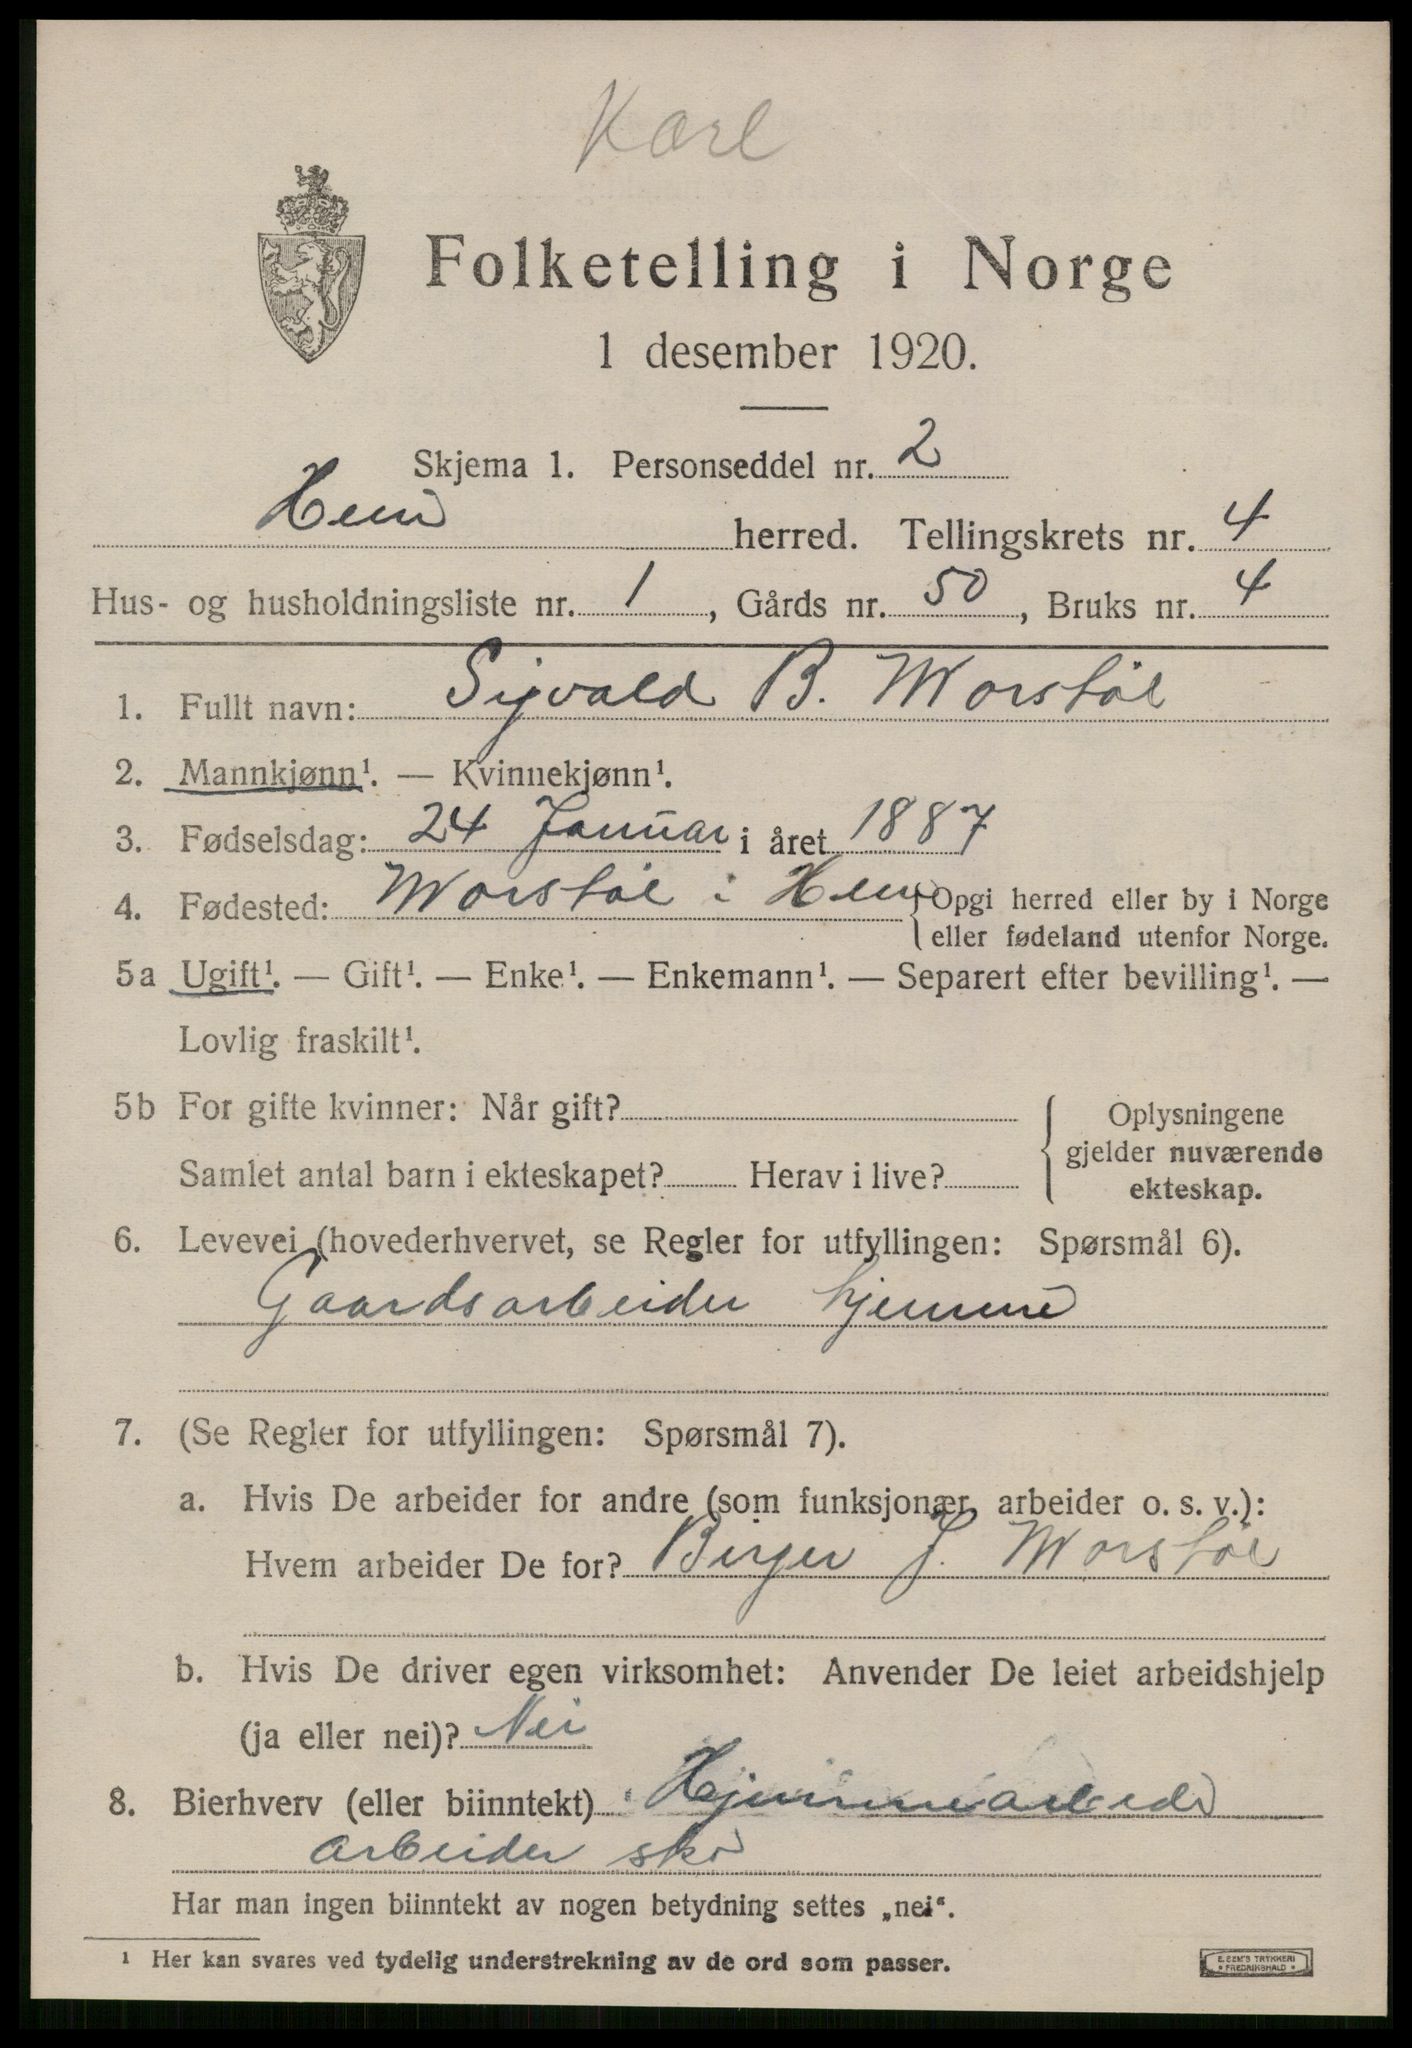 Karl
Folketelling i Norge
1 desember 1920.
Skjema 1. Personseddel nr. 2
Hem herred. Tellingskrets nr. 4
Hus- og husholdningsliste nr. 1, Gårds nr. 50, Bruks nr. 4
1. Fullt navn: Sigvald B. Worstöl
2. Mannkjønn¹. — Kvinnekjønn¹.
3. Fødselsdag: 24 Januar i året 1887
4. Fødested: Worstöl i Hem {Opgi herred eller by i Norge
eller fødeland utenfor Norge.
5a Ugift¹. — Gift¹. — Enke¹. — Enkemann¹. — Separert efter bevilling¹. —
Lovlig fraskilt¹.
5b For gifte kvinner: Når gift?
Samlet antal barn i ekteskapet? Herav i live?
Oplysningene
gjelder nuværende
ekteskap.
6. Levevei (hovederhvervet, se Regler for utfyllingen: Spørsmål 6).
Gaardsarbeider hjemme
7. (Se Regler for utfyllingen: Spørsmål 7).
a. Hvis De arbeider for andre (som funksjonær, arbeider o. s. v.):
Hvem arbeider De for? Birger J. Worstöl
b. Hvis De driver egen virksomhet: Anvender De leiet arbeidshjelp
(ja eller nei)? Nei
8. Bierhverv (eller biinntekt)
arbeider sko
Har man ingen biinntekt av nogen betydning settes „nei“.
¹ Her kan svares ved tydelig understrekning av de ord som passer.
E. SEM'S TRYKKERI
* FREDRIKSHALD *